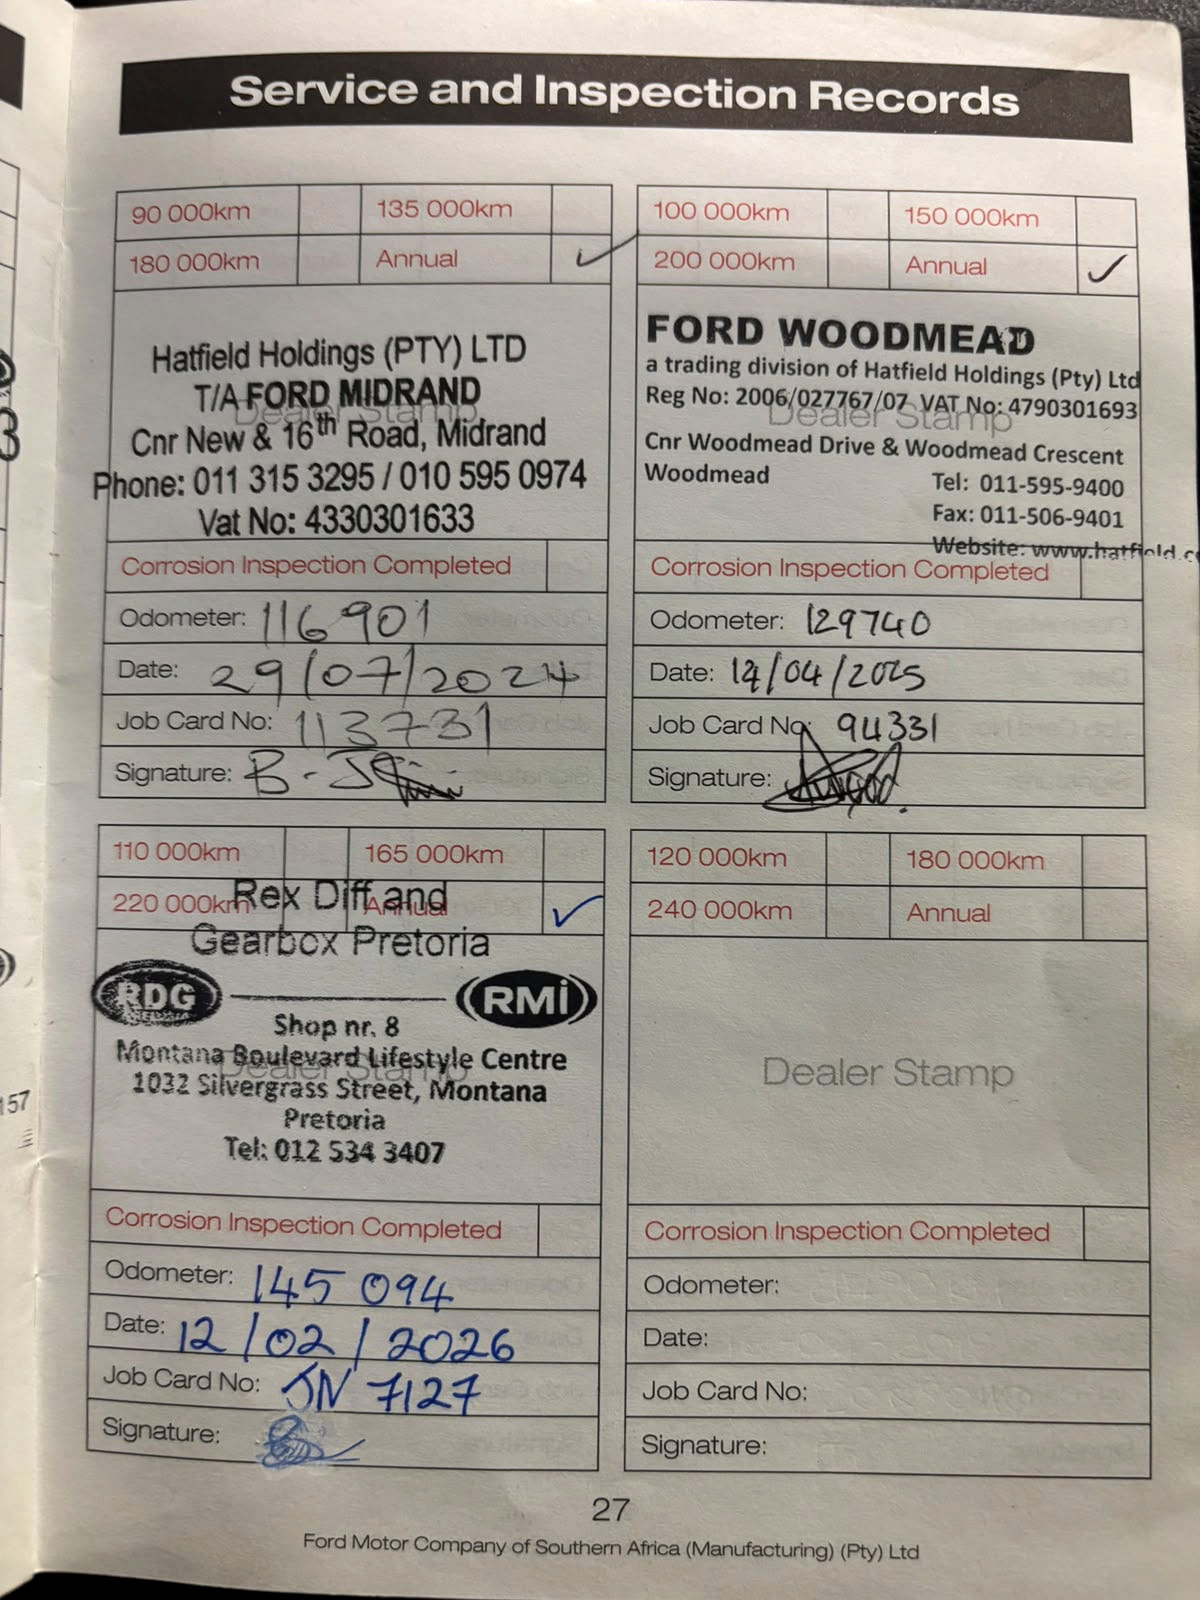 Service and Inspection Records
90 000km 135 000km
180 000km Annual ✓
Hatfield Holdings (PTY) LTD
T/A FORD MIDRAND
Dealer Stamp
Cnr New & 16th Road, Midrand
Phone: 011 315 3295 / 010 595 0974
Vat No: 4330301633
Corrosion Inspection Completed
Odometer: 116901
Date: 29/07/2024
Job Card No: 113731
Signature:
100 000km 150 000km
200 000km Annual ✓
FORD WOODMEAD
a trading division of Hatfield Holdings (Pty) Ltd
Reg No: 2006/027767/07 VAT No: 4790301693
Dealer Stamp
Cnr Woodmead Drive & Woodmead Crescent
Woodmead
Tel: 011-595-9400
Fax: 011-506-9401
Website: www.hatfield.c
Corrosion Inspection Completed
Odometer: 129740
Date: /04/2025
Job Card No: 94331
Signature:
110 000km 165 000km
220 000km Annual ✓
Rex Diff and
Gearbox Pretoria
RDG RMi
Shop nr. 8
Montana Boulevard Lifestyle Centre
Dealer Stamp
1032 Silvergrass Street, Montana
Pretoria
Tel: 012 534 3407
Corrosion Inspection Completed
Odometer: 145 094
Date: 12/02/2026
Job Card No: JN 7127
Signature:
120 000km 180 000km
240 000km Annual
Dealer Stamp
Corrosion Inspection Completed
Odometer:
Date:
Job Card No:
Signature:
27
Ford Motor Company of Southern Africa (Manufacturing) (Pty) Ltd